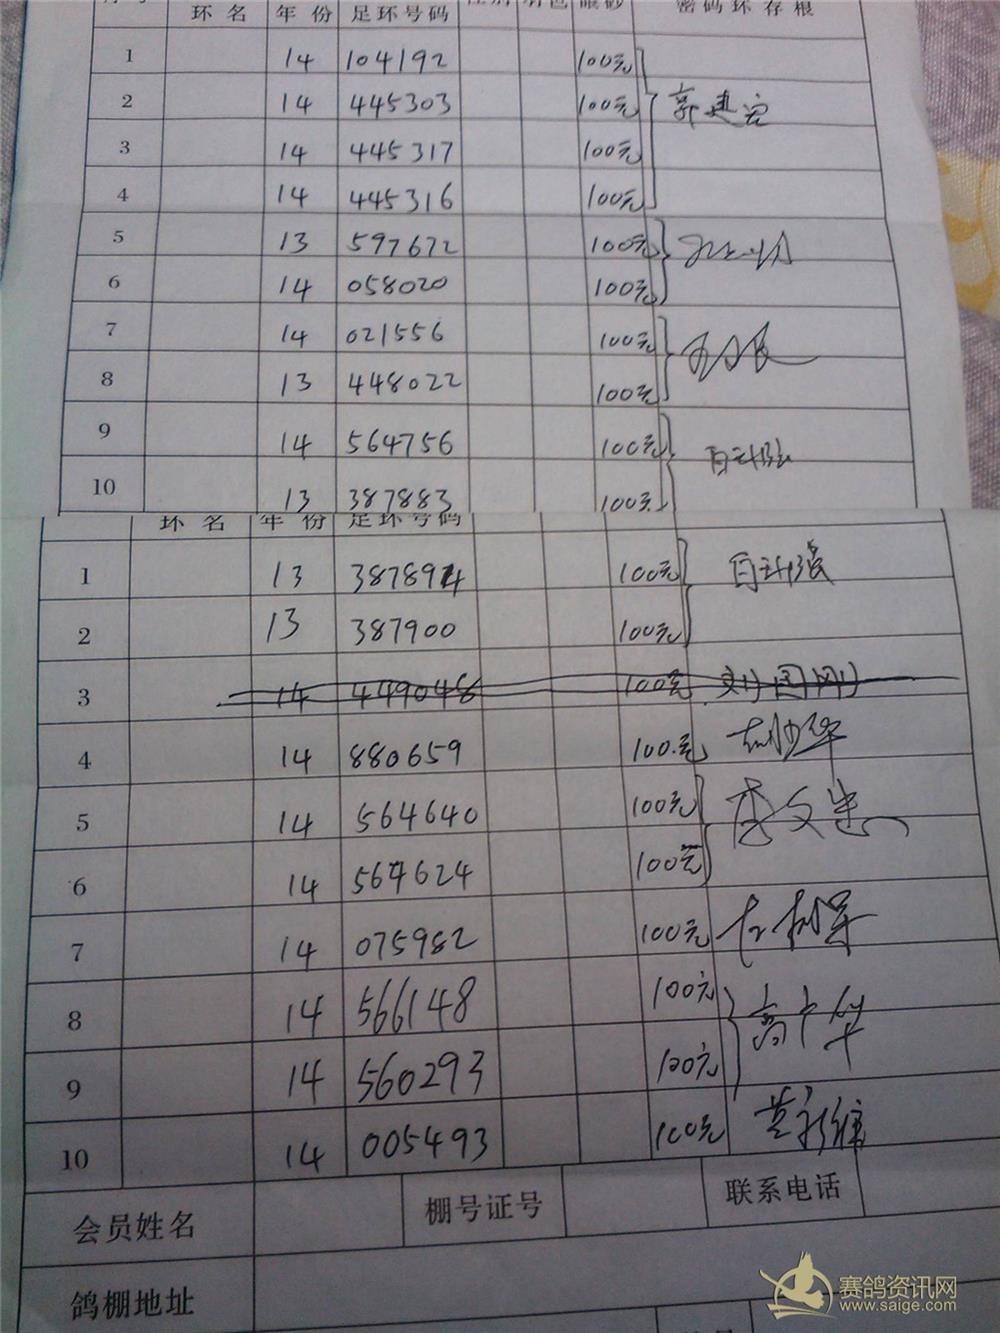 环名 年份 足环号码 密码环存根
1 14 104192 100元
2 14 445303 100元 郭建宏
3 14 445317 100元
4 14 445316 100元
5 13 597672 100元
6 14 058020 100元
7 14 021556 100元
8 13 448022 100元
9 14 564756 100元
10 13 387883 100元
环名 年份 足环号码
1 13 387894 100元
2 13 387900 100元
3 14 449048 100元 刘国刚
4 14 880659 100元
5 14 564640 100元
6 14 564624 100元
7 14 075982 100元
8 14 566148 100元 高中华
9 14 560293 100元
10 14 005493 100元
会员姓名 棚号证号 联系电话
鸽棚地址
赛鸽资讯网
www.saige.com